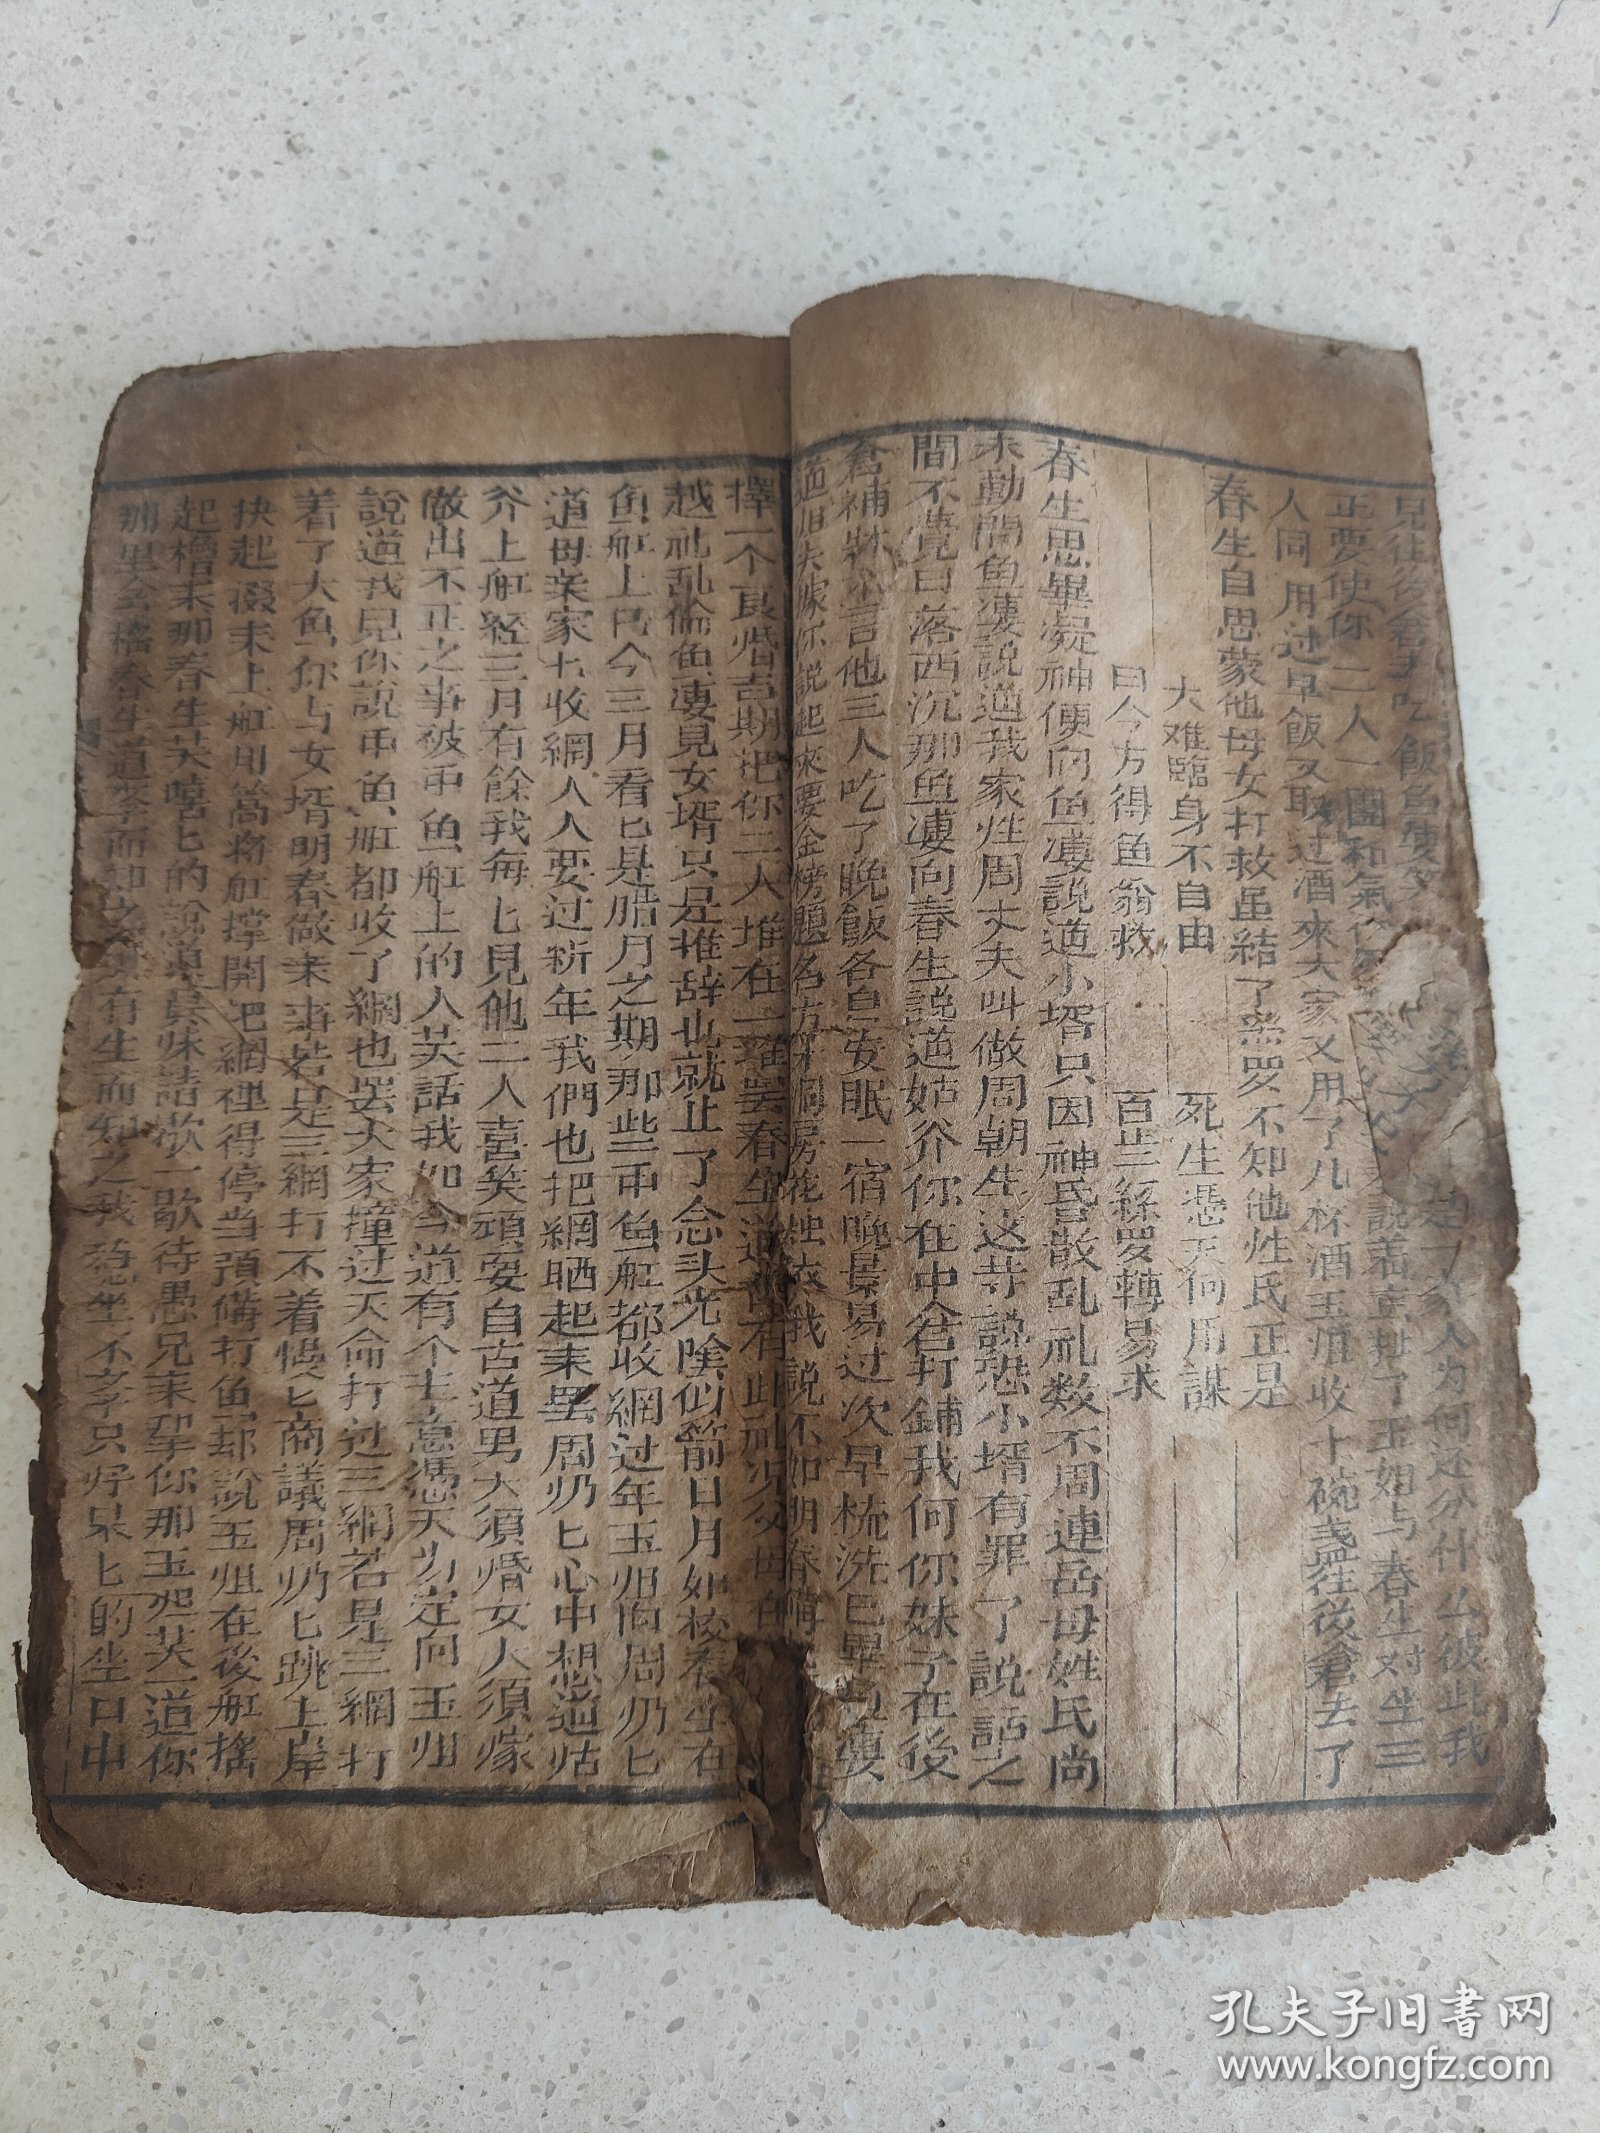 見往後倉去吃飯魚婆笑
人为何还分什么彼此我
正要使你二人一團和氣
說着立起了玉姐与春生对坐三
人同用过早飯又取过酒來大家又用了几杯酒玉姐收十碗盞往後倉去了
春生自思蒙他母女打救虽結了絲罗不知他姓氏正是
大难臨身不自由 死生憑天何用謀
日今方得鱼翁救 百岁絲罗轉易求
春生思畢凝神便向鱼婆說道小壻只因神昏散乱礼数不周連岳母姓氏尚
未動問鱼婆說道我家姓周丈夫叫做周朝生这等說恐小壻有罪了說話之
間不覺日落西沉那鱼婆向春生說道姑爷你在中倉打鋪我同你妹子在後
倉補 不言他三人吃了晚飯各自安眠一宿晚景易过次早梳洗已畢鱼婆
道姐夫據你說起來要金榜題名方保洞房花烛依我說不如明春
擇一个良婚吉期把你二人堆在一堆罢春生道豈有此礼况父母在
越礼乱倫鱼婆見女壻只是推辞也就止了念头光陰似箭日月如梭春生在
鱼舡上日今三月看已是腊月之期那些币鱼舡都收網过年玉姐向周奶匕
道母亲家七收網人人要过新年我們也把網晒起來罢周奶匕心中想道姑
爷上舡経三月有餘我每匕見他二人喜笑頑耍自古道男大須婚女大須嫁
做出不正之事被币鱼舡上的人关話我如今道有个主意憑天力定向玉姐
說道我見你說币鱼舡都收了網也罢大家撞过天命打过三網若是三網打
着了大鱼你与女壻明春做來事若是三網打不着慢匕商議周奶匕跳上岸
抉起 來上舡用篙将舡撑開把網裡得停当預備打鱼却說玉姐在後舡搖
起櫓來那春生关嘻匕的說道賢妹請歇一歇待愚兄來帮你那玉姐关道你
那里会搖春生道学而知之 有生而知之我 坐不学只好呆匕的坐口中
孔夫子旧书网
www.kongfz.com